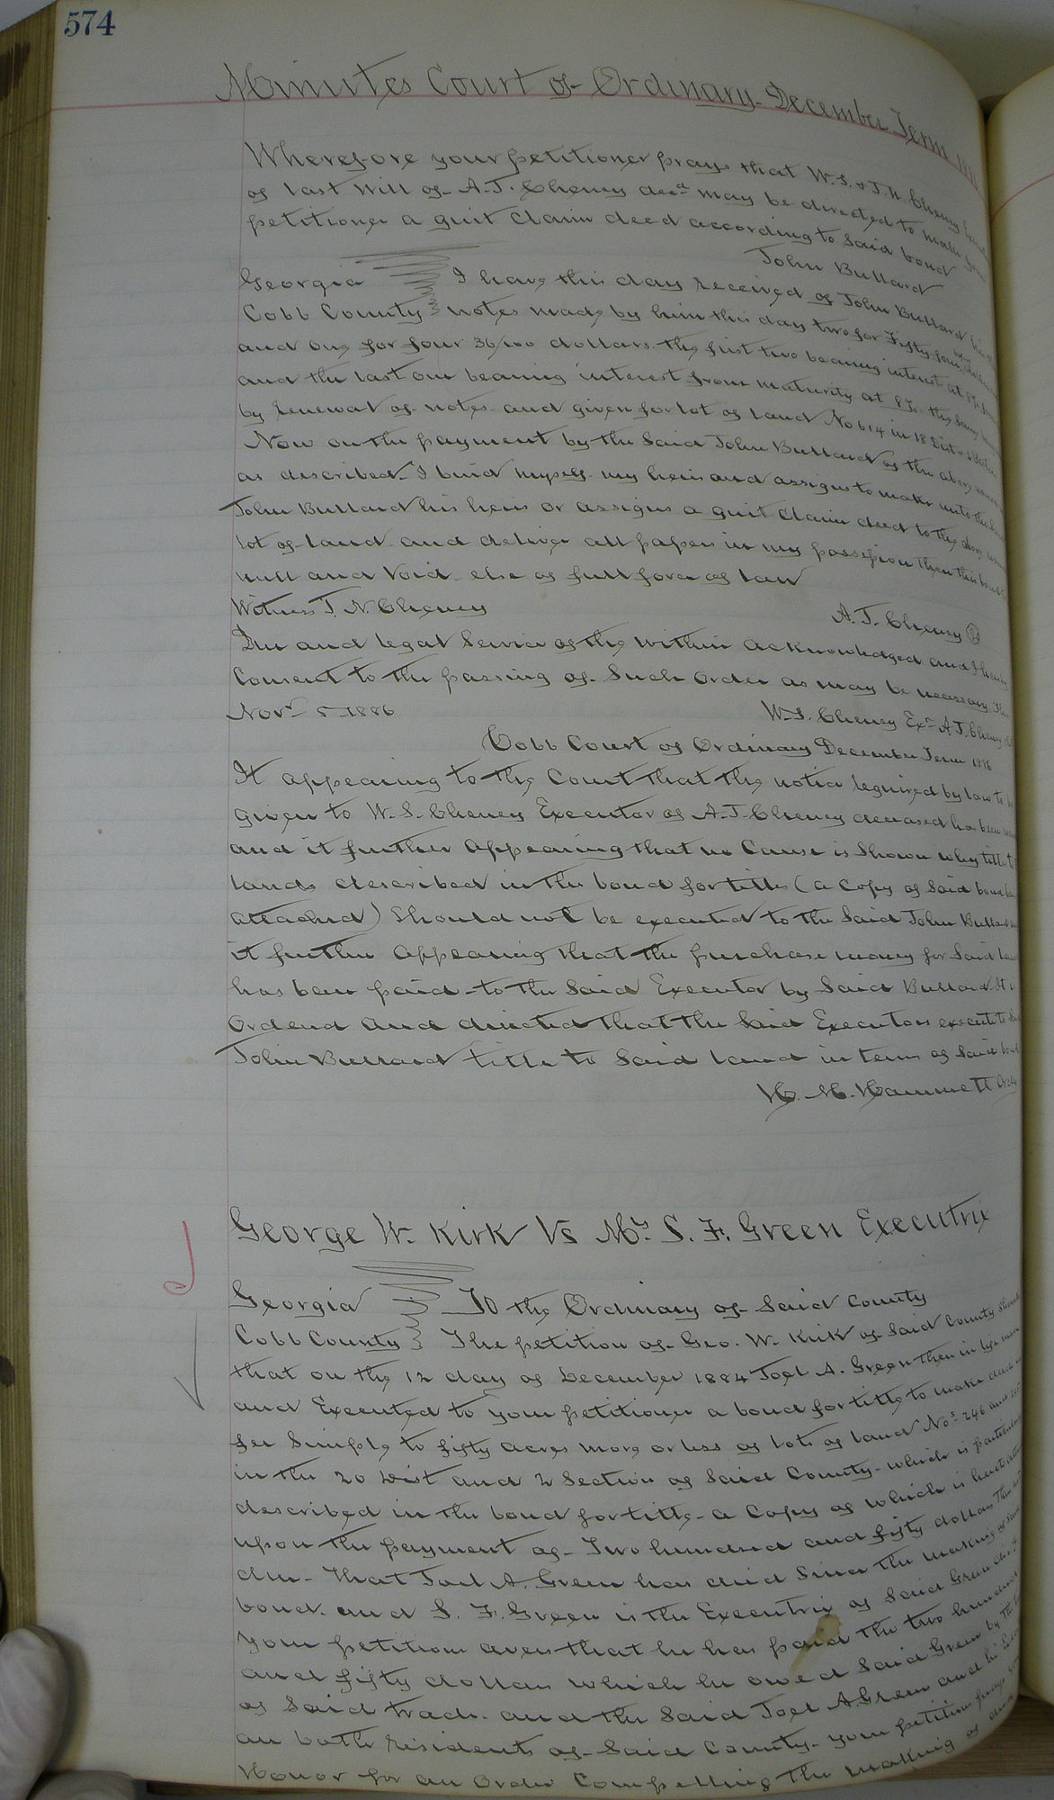 574
Minutes Court of Ordinary December Term
Wherefore your petitioner prays that W.S. & J.N. Cheney
of last Will of A.J. Cheney decd may be directed to make
petitioner a quit Claim deed according to said bond
John Bullard
Georgia I have this day received of John Bullard
Cobb County notes made by him this day two for Fifty four
and one for four 36/100 dollars the first two bearing interest at
and the last one bearing interest from maturity at 8 pr
by renewal of notes and given for lot of land No 614 in 18 Dist &
Now on the payment by the Said John Bullard of the above
as described I bind myself my heirs and assigns to make unto the
John Bullard his heirs or assigns a quit Claim deed to the above
lot of land and deliver all papers in my possession then this bond
null and Void else of full force of law
Witness T. N. Cheney
A. J. Cheney
Due and legal Service of the within acknowledged and
Consent to the passing of Such order as may be necessary
Novr 5 1886
W.S. Cheney Exr A.J. Cheney
Cobb Court of Ordinary December Term 1886
It appearing to the Court that the notice required by law to
given to W. S. Cheney Executor of A. J. Cheney deceased has been
and it further appearing that no Cause is Shown why title to
lands described in the bond for titles (a Copy of Said bond
attached) Should not be executed to the Said John Bullard
it further appearing that the purchase money for Said
has been paid to the Said Executor by Said Bullard It
Ordered and directed that the Said Executors execute to
John Bullard title to Said land in terms of Said
H. M. Hammett Ordy
George W. Kirk Vs Mrs S. F. Green Executrix
Georgia To the Ordinary of Said County
Cobb County The petition of Geo. W. Kirk of Said County
that on the 12 day of December 1884 Joel A. Green then in life
and Executed to your petitioner a bond for title to make
fee Simple to fifty acres more or less of lots of land Nos 246 and
in the 20 Dist and 2 Section of Said County which is particularly
described in the bond for title a Copy of which is
upon the payment of Two hundred and fifty dollars
due That Joel A. Green has died Since the making of
bond and S. F. Green is the Executrix of Said
your petitioner avers that he has paid the two hundred
and fifty dollars which he owed Said Green by the
of Said trade and the Said Joel A. Green and
are both residents of Said County your petitioner prays
Honor for an Order Compelling the making of